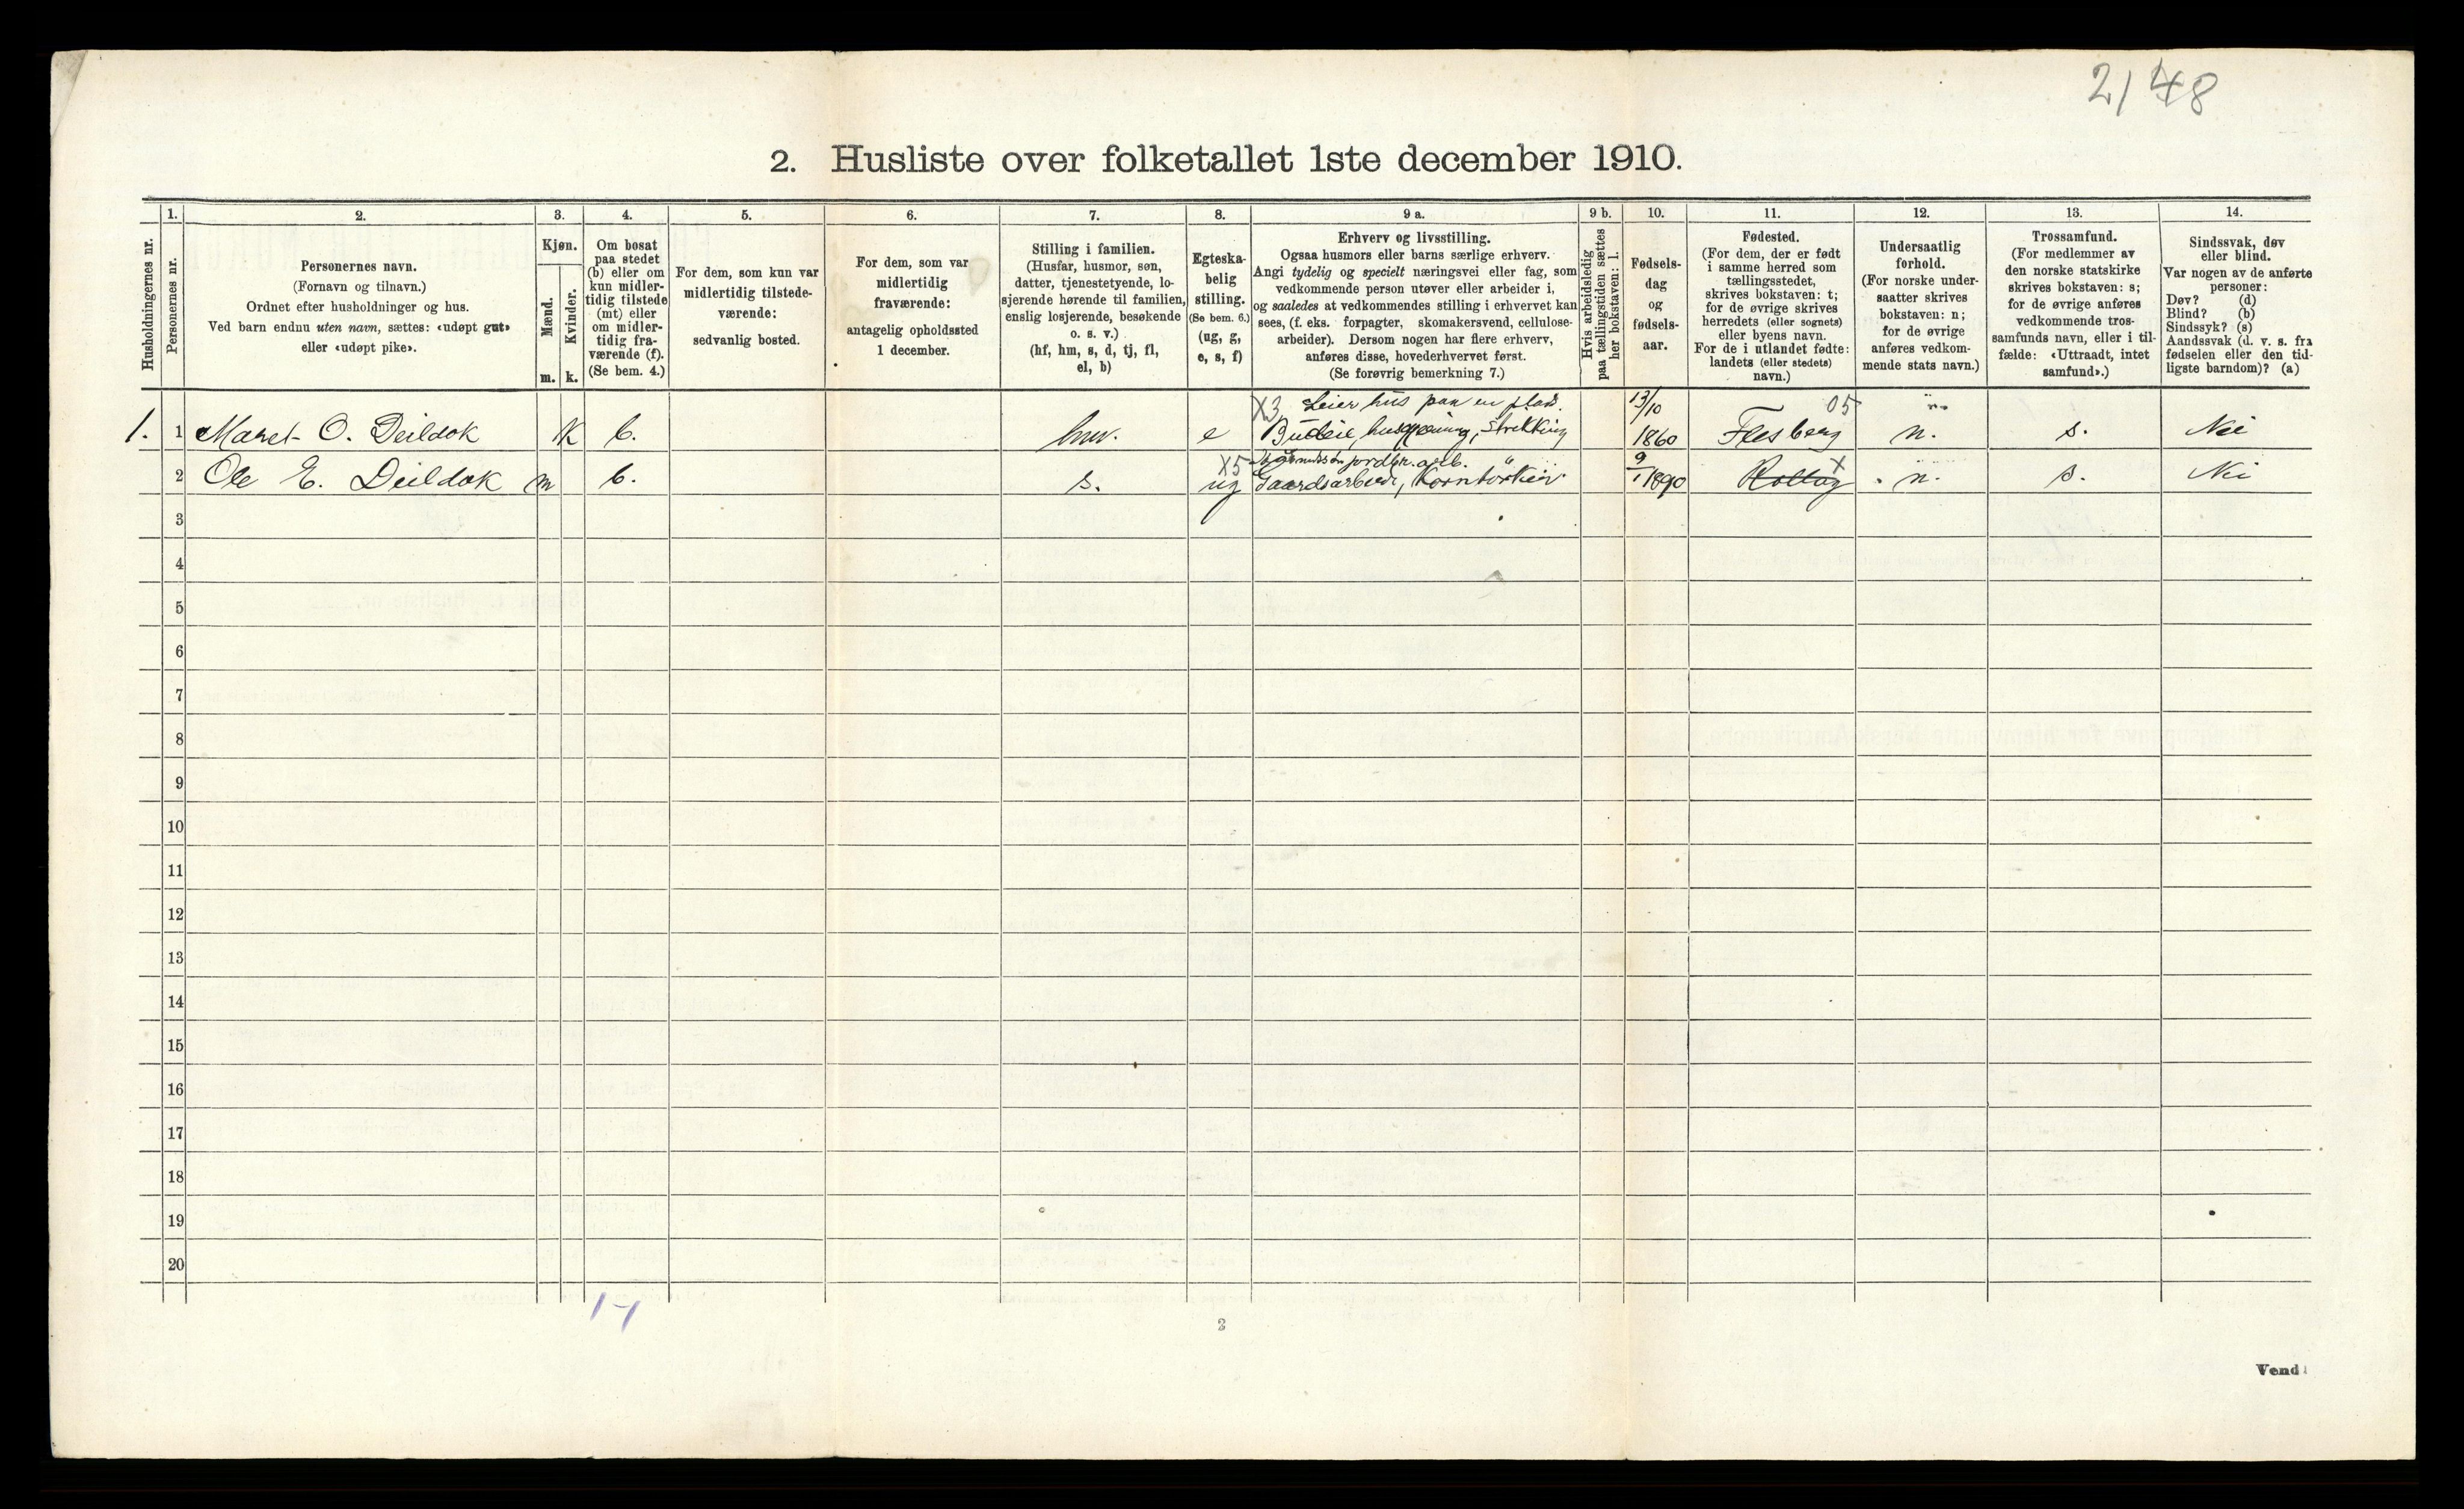 2148
2. Husliste over folketallet 1ste december 1910.
Husholdningernes nr.
1.
Personernes nr.
2.
Personernes navn.
(Fornavn og tilnavn.)
Ordnet efter husholdninger og hus.
Ved barn endnu uten navn, sættes: «udøpt gut»
eller «udøpt pike».
3.
Kjøn.
Mænd.
Kvinder.
m. k.
4.
Om bosat
paa stedet
(b) eller om
kun midler-
tidig tilstede
(mt) eller
om midler-
tidig fra-
værende (f).
(Se bem. 4.)
5.
For dem, som kun var
midlertidig tilstede-
værende:
sedvanlig bosted.
6.
For dem, som var
midlertidig
fraværende:
antagelig opholdssted
1 december.
7.
Stilling i familien.
(Husfar, husmor, søn,
datter, tjenestetyende, lo-
sjerende hørende til familien,
enslig losjerende, besøkende
o. s. v.)
(hf, hm, s, d, tj, fl,
el, b)
8.
Egteska-
belig
stilling.
(Se bem. 6.)
(ug, g,
e, s, f)
9 a.
Erhverv og livsstilling.
Ogsaa husmors eller barns særlige erhverv.
Angi tydelig og specielt næringsvei eller fag, som
vedkommende person utøver eller arbeider i,
og saaledes at vedkommendes stilling i erhvervet kan
sees, (f. eks. forpagter, skomakersvend, cellulose-
arbeider). Dersom nogen har flere erhverv,
anføres disse, hovederhvervet først.
(Se forøvrig bemerkning 7.)
9 b.
Hvis arbeidsledig
paa tællingstiden sættes
her bokstaven: l.
10.
Fødsels-
dag
og
fødsels-
aar.
11.
Fødested.
(For dem, der er født
i samme herred som
tællingsstedet,
skrives bokstaven: t;
for de øvrige skrives
herredets (eller sognets)
eller byens navn.
For de i utlandet fødte:
landets (eller stedets)
navn.)
12.
Undersaatlig
forhold.
(For norske under-
saatter skrives
bokstaven: n;
for de øvrige
anføres vedkom-
mende stats navn.)
13.
Trossamfund.
(For medlemmer av
den norske statskirke
skrives bokstaven: s;
for de øvrige anføres
vedkommende tros-
samfunds navn, eller i til-
fælde: «Uttraadt, intet
samfund».)
14.
Sindssvak, døv
eller blind.
Var nogen av de anførte
personer:
Døv? (d)
Blind? (b)
Sindssyk? (s)
Aandssvak (d. v. s. fra
fødselen eller den tid-
ligste barndom)? (a)
X3 Leier hus paa en plads. 13/10 05
1. 1 Maret O. Deildok k b. hm. e Budeie, husgjerning, Strikking 1860 Flesberg n. s. Nei
X5 jordbr. arb. 9/1 X
2 Ole E. Deildok m b. s. ug Gaardsarbeide, Korntörker 1890 Rollag n. s. Nei
3
4
5
6
7
8
9
10
11
12
13
14
15
16
17
18
19
20
1-1
2
Vend!